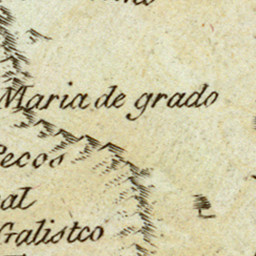 Maria de grado
Pecos
al
Galistco